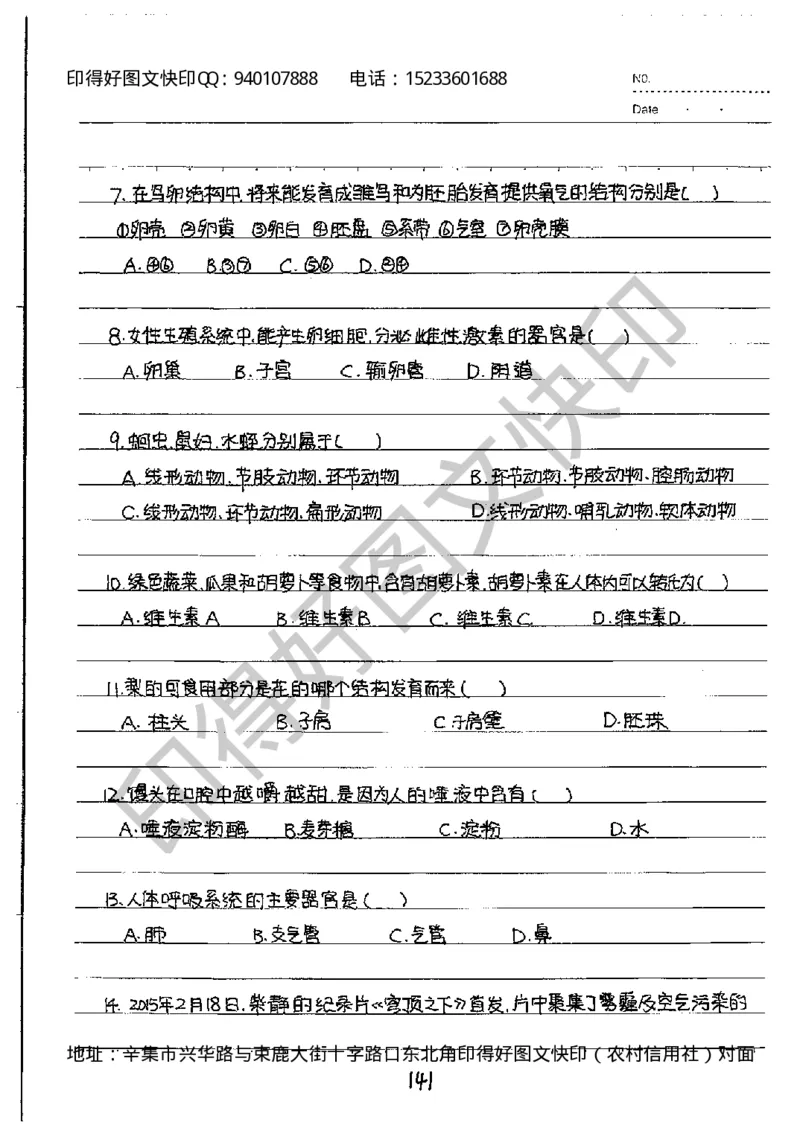 印得好图文快印QQ：940107888 电话：15233601688
NO.
Date
7、在鸟卵结构中，将来能发育成雏鸟和为胚胎发育提供氧气的结构分别是( )
①卵壳 ②卵黄 ③卵白 ④胚盘 ⑤系带 ⑥气室 ⑦卵壳膜
A.④⑥ B.③⑦ C.⑤⑥ D.②④
8.女性生殖系统中，能产生卵细胞，分泌雌性激素的器官是( )
A.卵巢 B.子宫 C.输卵管 D.阴道
9.蛔虫、鼠妇、水蛭分别属于( )
A.线形动物、节肢动物、环节动物 B.环节动物、节肢动物、腔肠动物
C.线形动物、环节动物、扁形动物 D.线形动物、哺乳动物、软体动物
10.绿色蔬菜、瓜果和胡萝卜等食物中，含有胡萝卜素，胡萝卜素在人体内可以转化为( )
A.维生素A B.维生素B C.维生素C D.维生素D.
11.梨的可食用部分是在的哪个结构发育而来( )
A.柱头 B.子房 C子房壁 D.胚珠
12.馒头在口腔中越嚼越甜，是因为人的唾液中含有( )
A.唾液淀粉酶 B.麦芽糖 C.淀粉 D.水
13、人体呼吸系统的主要器官是( )
A.肺 B.支气管 C.气管 D.鼻
14. 2015年2月18日，柴静的纪录片《穹顶之下》首发，片中聚集了雾霾及空气污染的
地址：辛集市兴华路与束鹿大街十字路口东北角印得好图文快印（农村信用社）对面
141
印得好图文快印